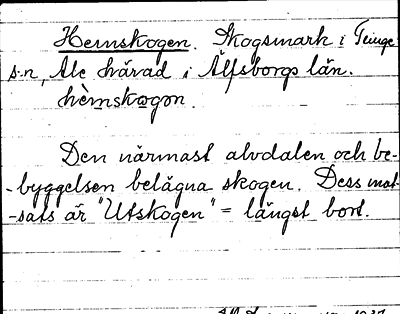 Hemskogen. Skogsmark i Tunge
s:n, Ale härad i Älfsborgs län.
hèmskogon.
Den närmast älvdalen och be-
-byggelsen belägna skogen. Dess mot-
-sats är "Utskogen" = längst bort.